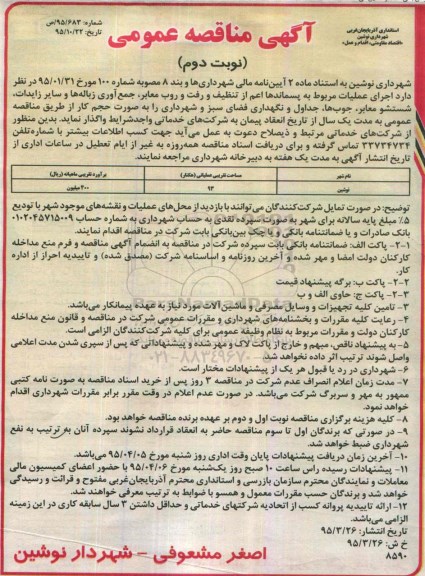 استانداری آذربایجان‌غربی
شهرداری نوشین
«اقتصاد مقاومتی، اقدام و عمل»
شماره: ۹۵/۶۸۳/ص
تاریخ: ۹۵/۱۰/۲۲
آگهی مناقصه عمومی
(نوبت دوم)
شهرداری نوشین به استناد ماده ۲ آیین‌نامه مالی شهرداری‌ها و بند ۸ مصوبه شماره ۱۰۰ مورخ ۹۵/۰۱/۳۱ در نظر
دارد اجرای عملیات مربوط به پسماندها اعم از تنظیف و رفت و روب معابر، جمع‌آوری زباله‌ها و سایر زایدات،
شستشو معابر، جوب‌ها، جداول و نگهداری فضای سبز و شهرداری را به صورت حجم کار از طریق مناقصه
عمومی به مدت یک سال از تاریخ انعقاد پیمان به شرکت‌های خدماتی واجدشرایط واگذار نماید. بدین منظور
از شرکت‌های خدماتی مرتبط و ذیصلاح دعوت به عمل می‌آید جهت کسب اطلاعات بیشتر با شماره‌تلفن
۳۳۷۳۴۷۳۴ تماس گرفته و برای دریافت اسناد مناقصه همه‌روزه به غیر از ایام تعطیل در ساعات اداری از
تاریخ انتشار آگهی به مدت یک هفته به دبیرخانه شهرداری مراجعه نمایند.
نام شهر مساحت تقریبی عملیاتی (هکتار) برآورد تقریبی ماهیانه (ریال)
نوشین ۹۳ ۲۰۰ میلیون
توضیح: در صورت تمایل شرکت‌کنندگان می‌توانند با بازدید از محل‌های عملیات و نقشه‌های موجود شهر با تودیع
۵٪ مبلغ پایه سالانه برای شهر به صورت سپرده نقدی به حساب شهرداری به شماره حساب ۰۱۰۲۰۴۵۷۱۵۰۰۹
بانک صادرات و یا ضمانتنامه بانکی و یا چک بین‌بانکی بابت شرکت در مناقصه اقدام نمایند.
۲-۱- پاکت الف: ضمانتنامه بانکی بابت سپرده شرکت در مناقصه به انضمام آگهی مناقصه و فرم منع مداخله
کارکنان دولت امضا و مهر شده و آخرین روزنامه و اساسنامه شرکت (مصدق شده) و تاییدیه احراز از اداره
کار.
۲-۲- پاکت ب: برگه پیشنهاد قیمت
۲-۳- پاکت ج: حاوی الف و ب
۳- تامین کلیه تجهیزات و وسایل مصرفی و ماشین‌آلات مورد نیاز به عهده پیمانکار می‌باشد.
۴- رعایت کلیه مقررات و بخشنامه‌های شهرداری و مقررات عمومی شرکت در مناقصه و قانون منع مداخله
کارکنان دولت و مقررات مربوط به نظام وظیفه عمومی برای کلیه شرکت‌کنندگان الزامی است.
۵- به پیشنهاد ناقص، مبهم و خارج از پاکت لاک و مهر شده و پیشنهاداتی که پس از سپری شدن مدت اعلامی
واصل شوند ترتیب اثر داده نخواهد شد.
۶- شهرداری در رد یا قبول هر یک از پیشنهادات مختار است.
۷- مدت زمان اعلام انصراف عدم شرکت در مناقصه ۳ روز پس از خرید اسناد مناقصه به صورت نامه کتبی
ممهور به مهر و سربرگ شرکت می‌باشد. در صورت عدم اعلام در وقت مقرر برابر مقررات شهرداری اقدام
خواهد نمود.
۸- کلیه هزینه برگزاری مناقصه نوبت اول و دوم بر عهده برنده مناقصه خواهد بود.
۹- در صورتی که برندگان اول تا سوم مناقصه حاضر به انعقاد قرارداد نشوند سپرده آنان به ترتیب به نفع
شهرداری ضبط خواهد شد.
۱۰- آخرین زمان دریافت پیشنهادات پایان وقت اداری روز شنبه مورخ ۹۵/۰۴/۰۵ می‌باشد.
۱۱- پیشنهادات رسیده راس ساعت ۱۰ صبح روز یک‌شنبه مورخ ۹۵/۰۴/۰۶ با حضور اعضای کمیسیون مالی
معاملات و نمایندگان محترم سازمان بازرسی و استانداری محترم آذربایجان‌غربی مفتوح و قرائت و رسیدگی
خواهد شد و برندگان حسب مقررات معمول و همسو با ضوابط به ترتیب معرفی خواهند شد.
۱۲- ارائه تاییدیه پروانه کسب از اتحادیه شرکتهای خدماتی و حداقل داشتن ۳ سال سابقه کاری در این زمینه
الزامی می‌باشد.
تاریخ انتشار: ۹۵/۳/۲۶
خ ش: ۹۵/۳/۲۶
۸۵۹۰
اصغر مشعوفی – شهردار نوشین